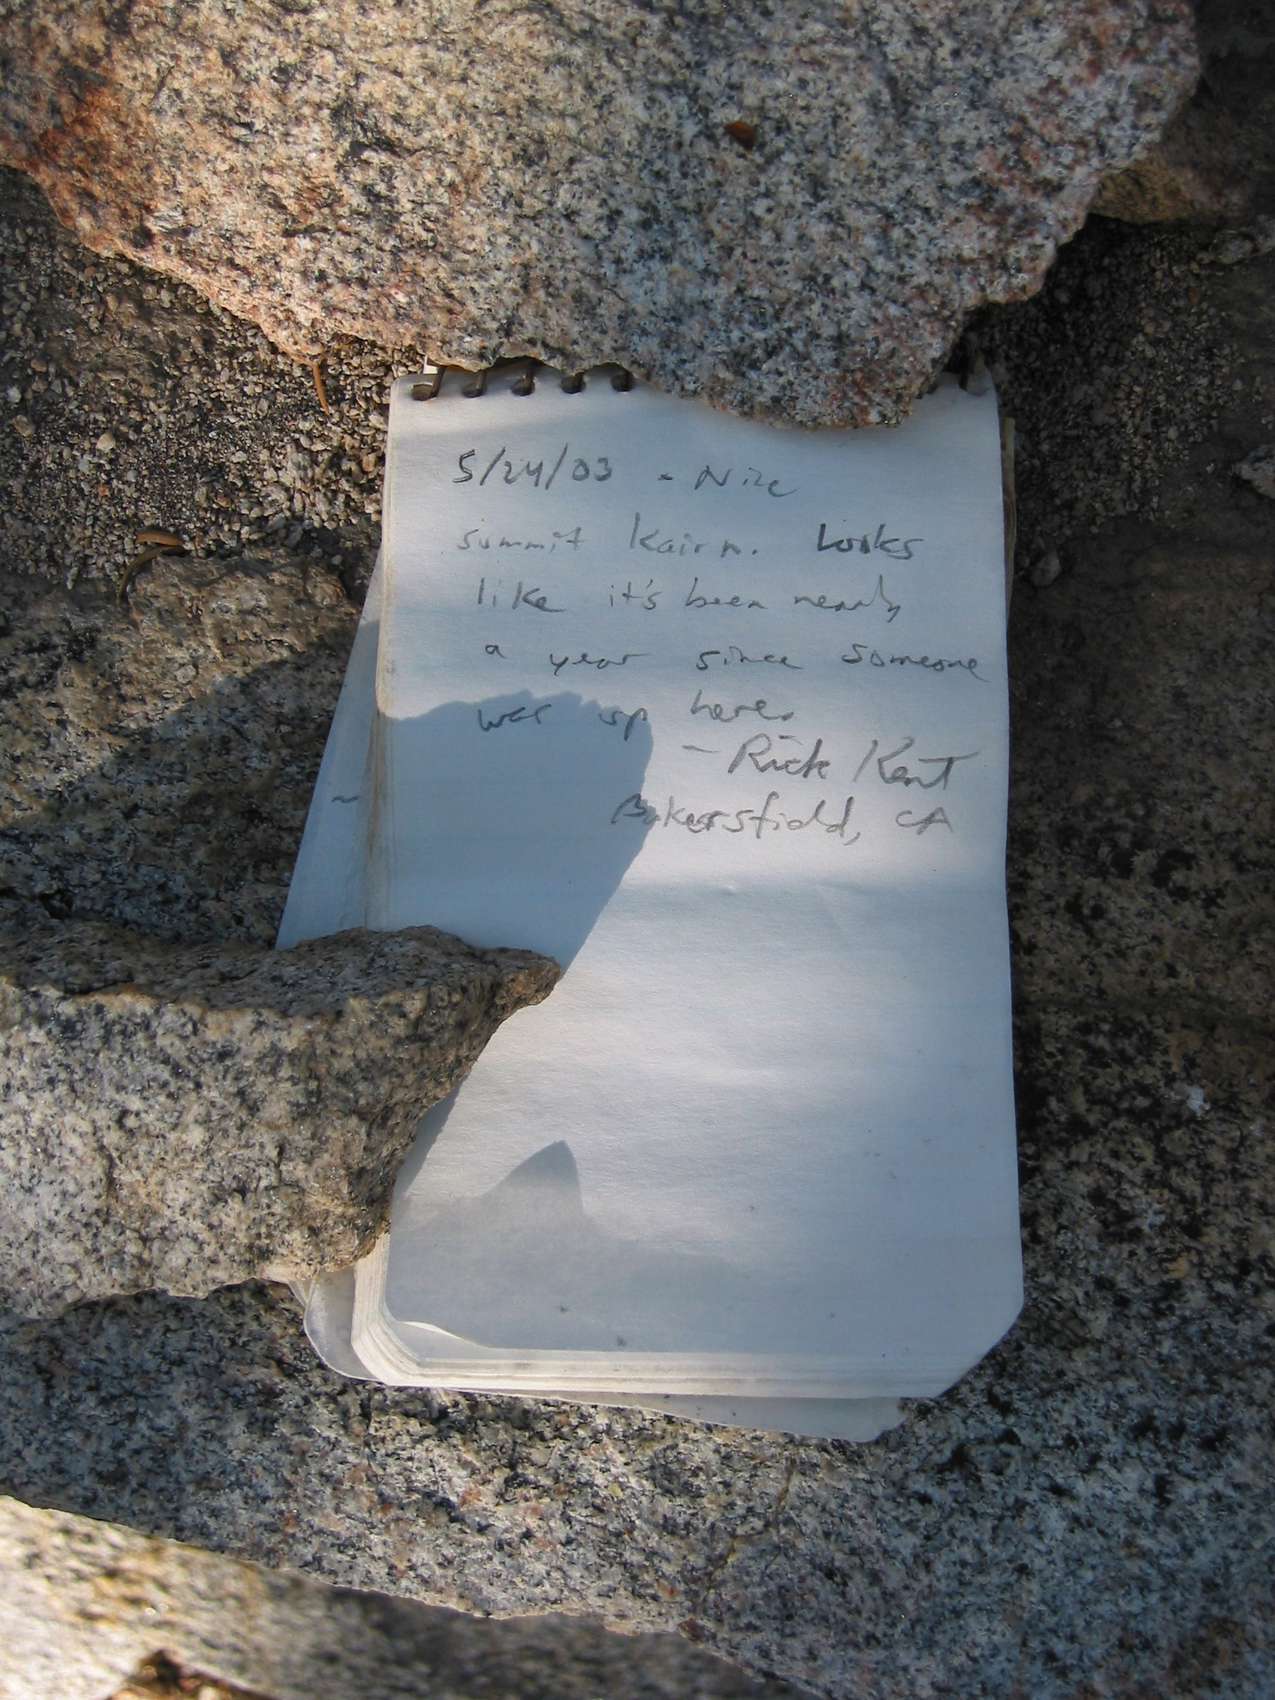 5/24/03 - Nice
summit Kairn. Looks
like it's been nearly
a year since someone
was up here.
- Rick Kent
Bakersfield, CA